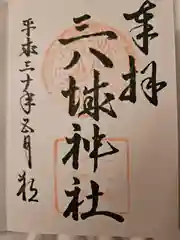 奉拝
三八城神社
平成三十年五月